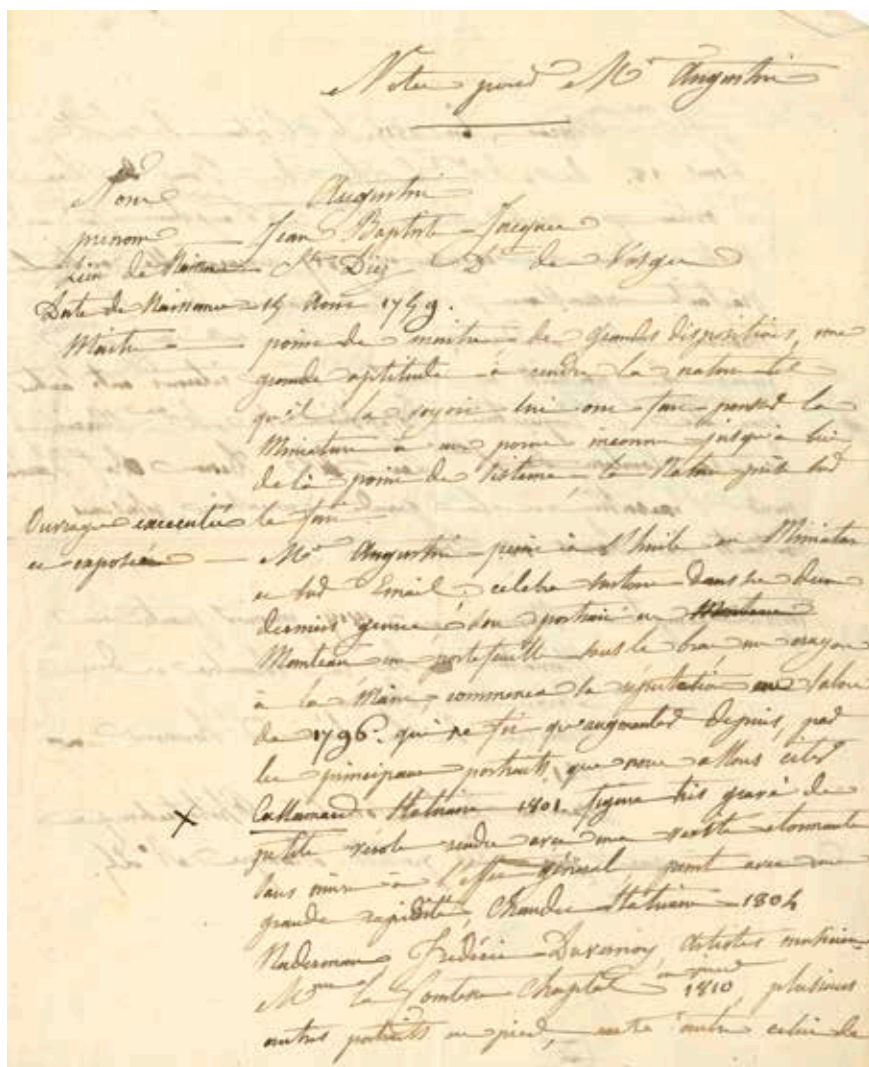 Notes pour Mr Augustin
Nom Augustin
prenom Jean Baptiste Jacques
Lieu de Naissce St Diez Dt de Vosges
Date de Naissance 15 Aout 1759.
Maitre point de maitre de grandes dispositions, une
grande aptitude à rendre la nature telle
qu'il la voyoit lui ont fait porter la
Miniature à un point inconnu jusqu'à lui,
de là point de sisteme la Nature prise sur
Ouvrages executés le fait.
et exposées Mr Augustin peint à l'huile en Miniature
et sur Email, celebre surtout dans ces deux
derniers genres son portrait en
Manteau un portefeuille sous le bras un crayon
à la Main, commenca sa réputation au Salon
de 1796. qui ne fit qu'augmenter depuis, par
les principaux portraits, que nous allons citer
x Callamard Statuaire 1801 figure très gravé de
petite vérole rendue avec une verité étonnante
sans nuire à l'effet général, peint avec une
grande rapidité, Chaudet Statuaire 1804
Naderman Frédéric Duvernoy artistes musiciens
Mme la Comtesse Chaptal 1810, plusieurs
autres portraits en pied, entre autre celui de